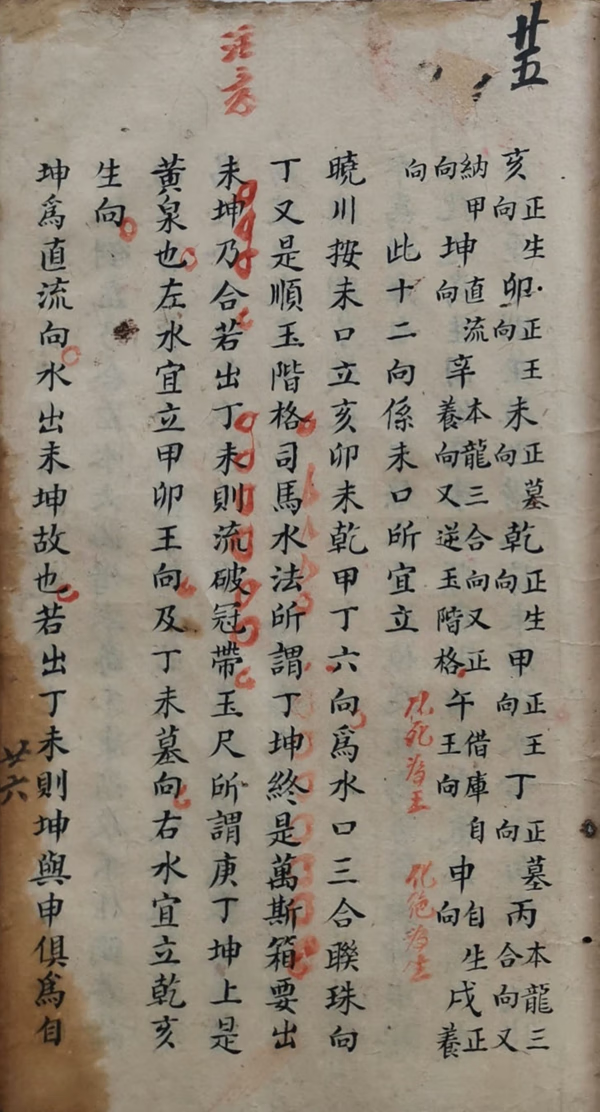 廿五
亥正生向卯正王向未正墓向乾正生向甲正王向丁正墓向丙本龍三合向又
納甲向坤直流向辛本龍三合向又正養向又逆玉階格午借庫自王向申自生向戌正養
向
化死為王
化絕為生
此十二向係未口所宜立
曉川按未口立亥卯未乾甲丁六向為水口三合聯珠向
丁又是順玉階格司馬水法所謂丁坤終是萬斯箱要出
注意
未坤乃合若出丁未則流破冠帶玉尺所謂庚丁坤上是
黃泉也左水宜立甲卯王向及丁未墓向右水宜立乾亥
生向
坤為直流向水出未坤故也若出丁未則坤與申俱為自
廿六